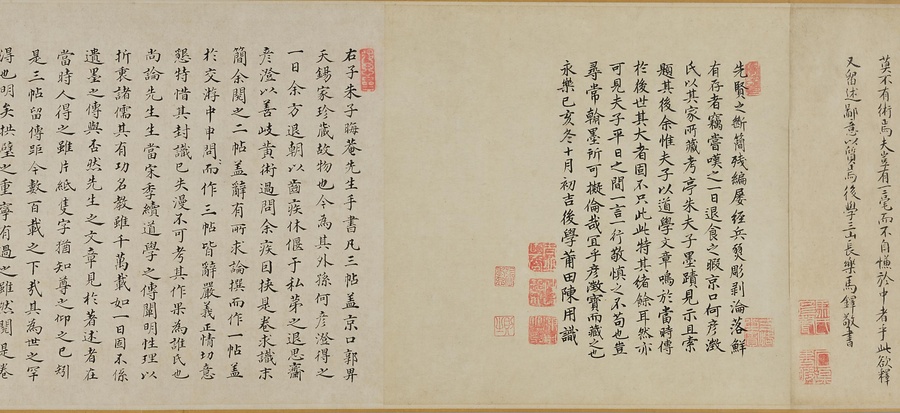 莫不有術焉夫豈有一毫而不自慊於中者乎此欲釋
又留述鄙意以質焉後學三山長樂馬鐸敬書
先賢之斷簡殘編屢經兵燹彫剥淪落鮮
有存者竊嘗嘆之一日退食之暇京口何彥澂
氏以其家所藏考亭朱夫子墨蹟見示且索
題其後余惟夫子以道學文章鳴於當時傳
於後世其大者固不只此此特其緒餘耳然亦
可見夫子平日之間一言一行敬慎之不苟也豈
尋常翰墨所可擬倫哉宜乎彥澂寶而藏之也
永樂己亥冬十月初吉後學莆田陳用識
右子朱子晦菴先生手書凡三帖蓋京口郭畀
天錫家珍藏故物也今為其外孫何彥澄得之
一日余方退朝以齒疾休偃于私第之退思齋
彥澄以善岐黄術過問余疾因挟是卷求識末
簡余閱之二帖蓋辭有所求論撰而作一帖蓋
於交將中申問而作三帖皆辭嚴義正情切意
懇特惜其封識已失漫不可考其作果為誰氏也
尚論先生生當宋季續道學之傳闡明性理以
折衷諸儒其有功名教雖千萬載如一日固不係
遺墨之傳與否然先生之文章見於著述者在
當時人得之雖片紙隻字猶知尊之仰之已矧
是三帖留傳距今數百載之下式其為世之罕
得也明矣拱璧之重寧有過之雖然閱是卷